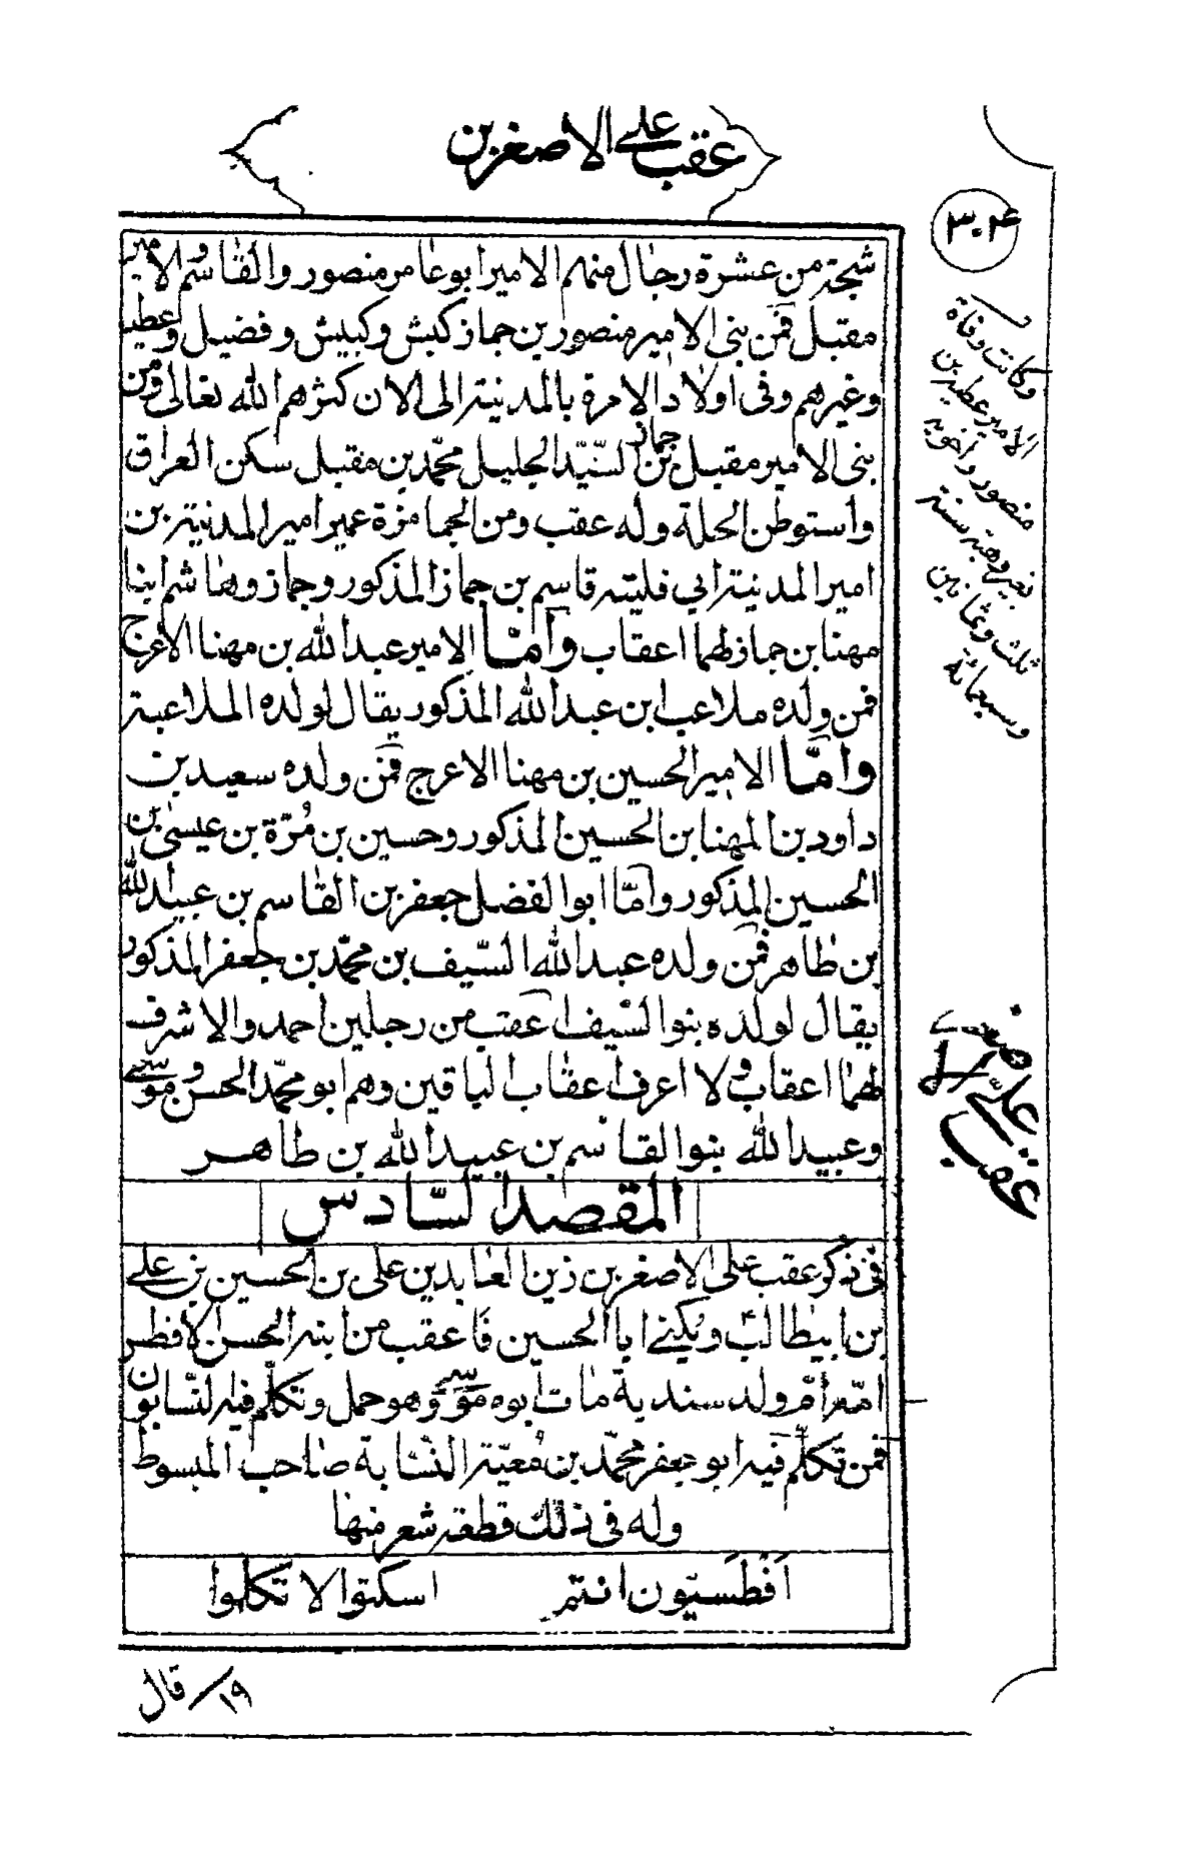 عقب علي الاصغر بن
٣٠۴
شيحة من عشرة رجال منهم الامير ابو عامر منصور والقاسم و الامير
مقبل فمن بنى الامير منصور بن جماز كبش وكبيش وفضيل وعطية
وغيرهم وفى اولاد الامرة بالمدينة الى الان كثرهم الله تعالى ومن
بنى الامير مقبل بن جماز السيّد الجليل محمّد بن مقبل سكن العراق
واستوطن الحلة وله عقب ومن الجمامزة عمير امير المدينة بن
امير المدينة ابي فليتة قاسم بن جماز المذكور وجماز وهاشم ابنا
مهنا بن جماز لهما اعقاب وامّا الامير عبد الله بن مهنا الاعرج
فمن ولده ملاعب ابن عبد الله المذكور يقال لولده الملاعبة
وامّا الامير الحسين بن مهنا الاعرج فمن ولده سعيد بن
داود بن المهنا بن الحسين المذكور وحسين بن مُرّة بن عيسى بن
الحسين المذكور وامّا ابو الفضل جعفر بن القاسم بن عبيد الله
بن طاهر فمن ولده عبد الله السّيف بن محمّد بن جعفر المذكور
يقال لولده بنو السّيف اعقب من رجلين احمد والاشرف
لهما اعقاب ولا اعرف اعقاب الباقين وهم ابو محمّد الحسن و موسى
وعبيد الله بنو القاسم بن عبيد الله بن طاهر
المقصد السّادس
فى ذكر عقب على الاصغر بن زين العابدين على بن الحسين بن علي
بن ابيطالبؑ ويكنى ابا الحسين فاعقب من ابنه الحسن الافطس
امّه امّ ولد سندية مات ابوه موسى وهو حمل وتكلّم فيه النّسابون
فمن تكلّم فيه ابو جعفر محمّد بن مُعيّة النّسّابة صاحب المبسوط
وله فى ذلك قطعة شعر منها
اَفْطَسيّون انتم اسكتوا لا تَكلموا
وكانت وفاة
الامير عطية بن
منصور واخويه
نعير وهبة سنة
ثلث وثمانين
وسبعمائة
عقب علي الاصغر
١٩/ قال